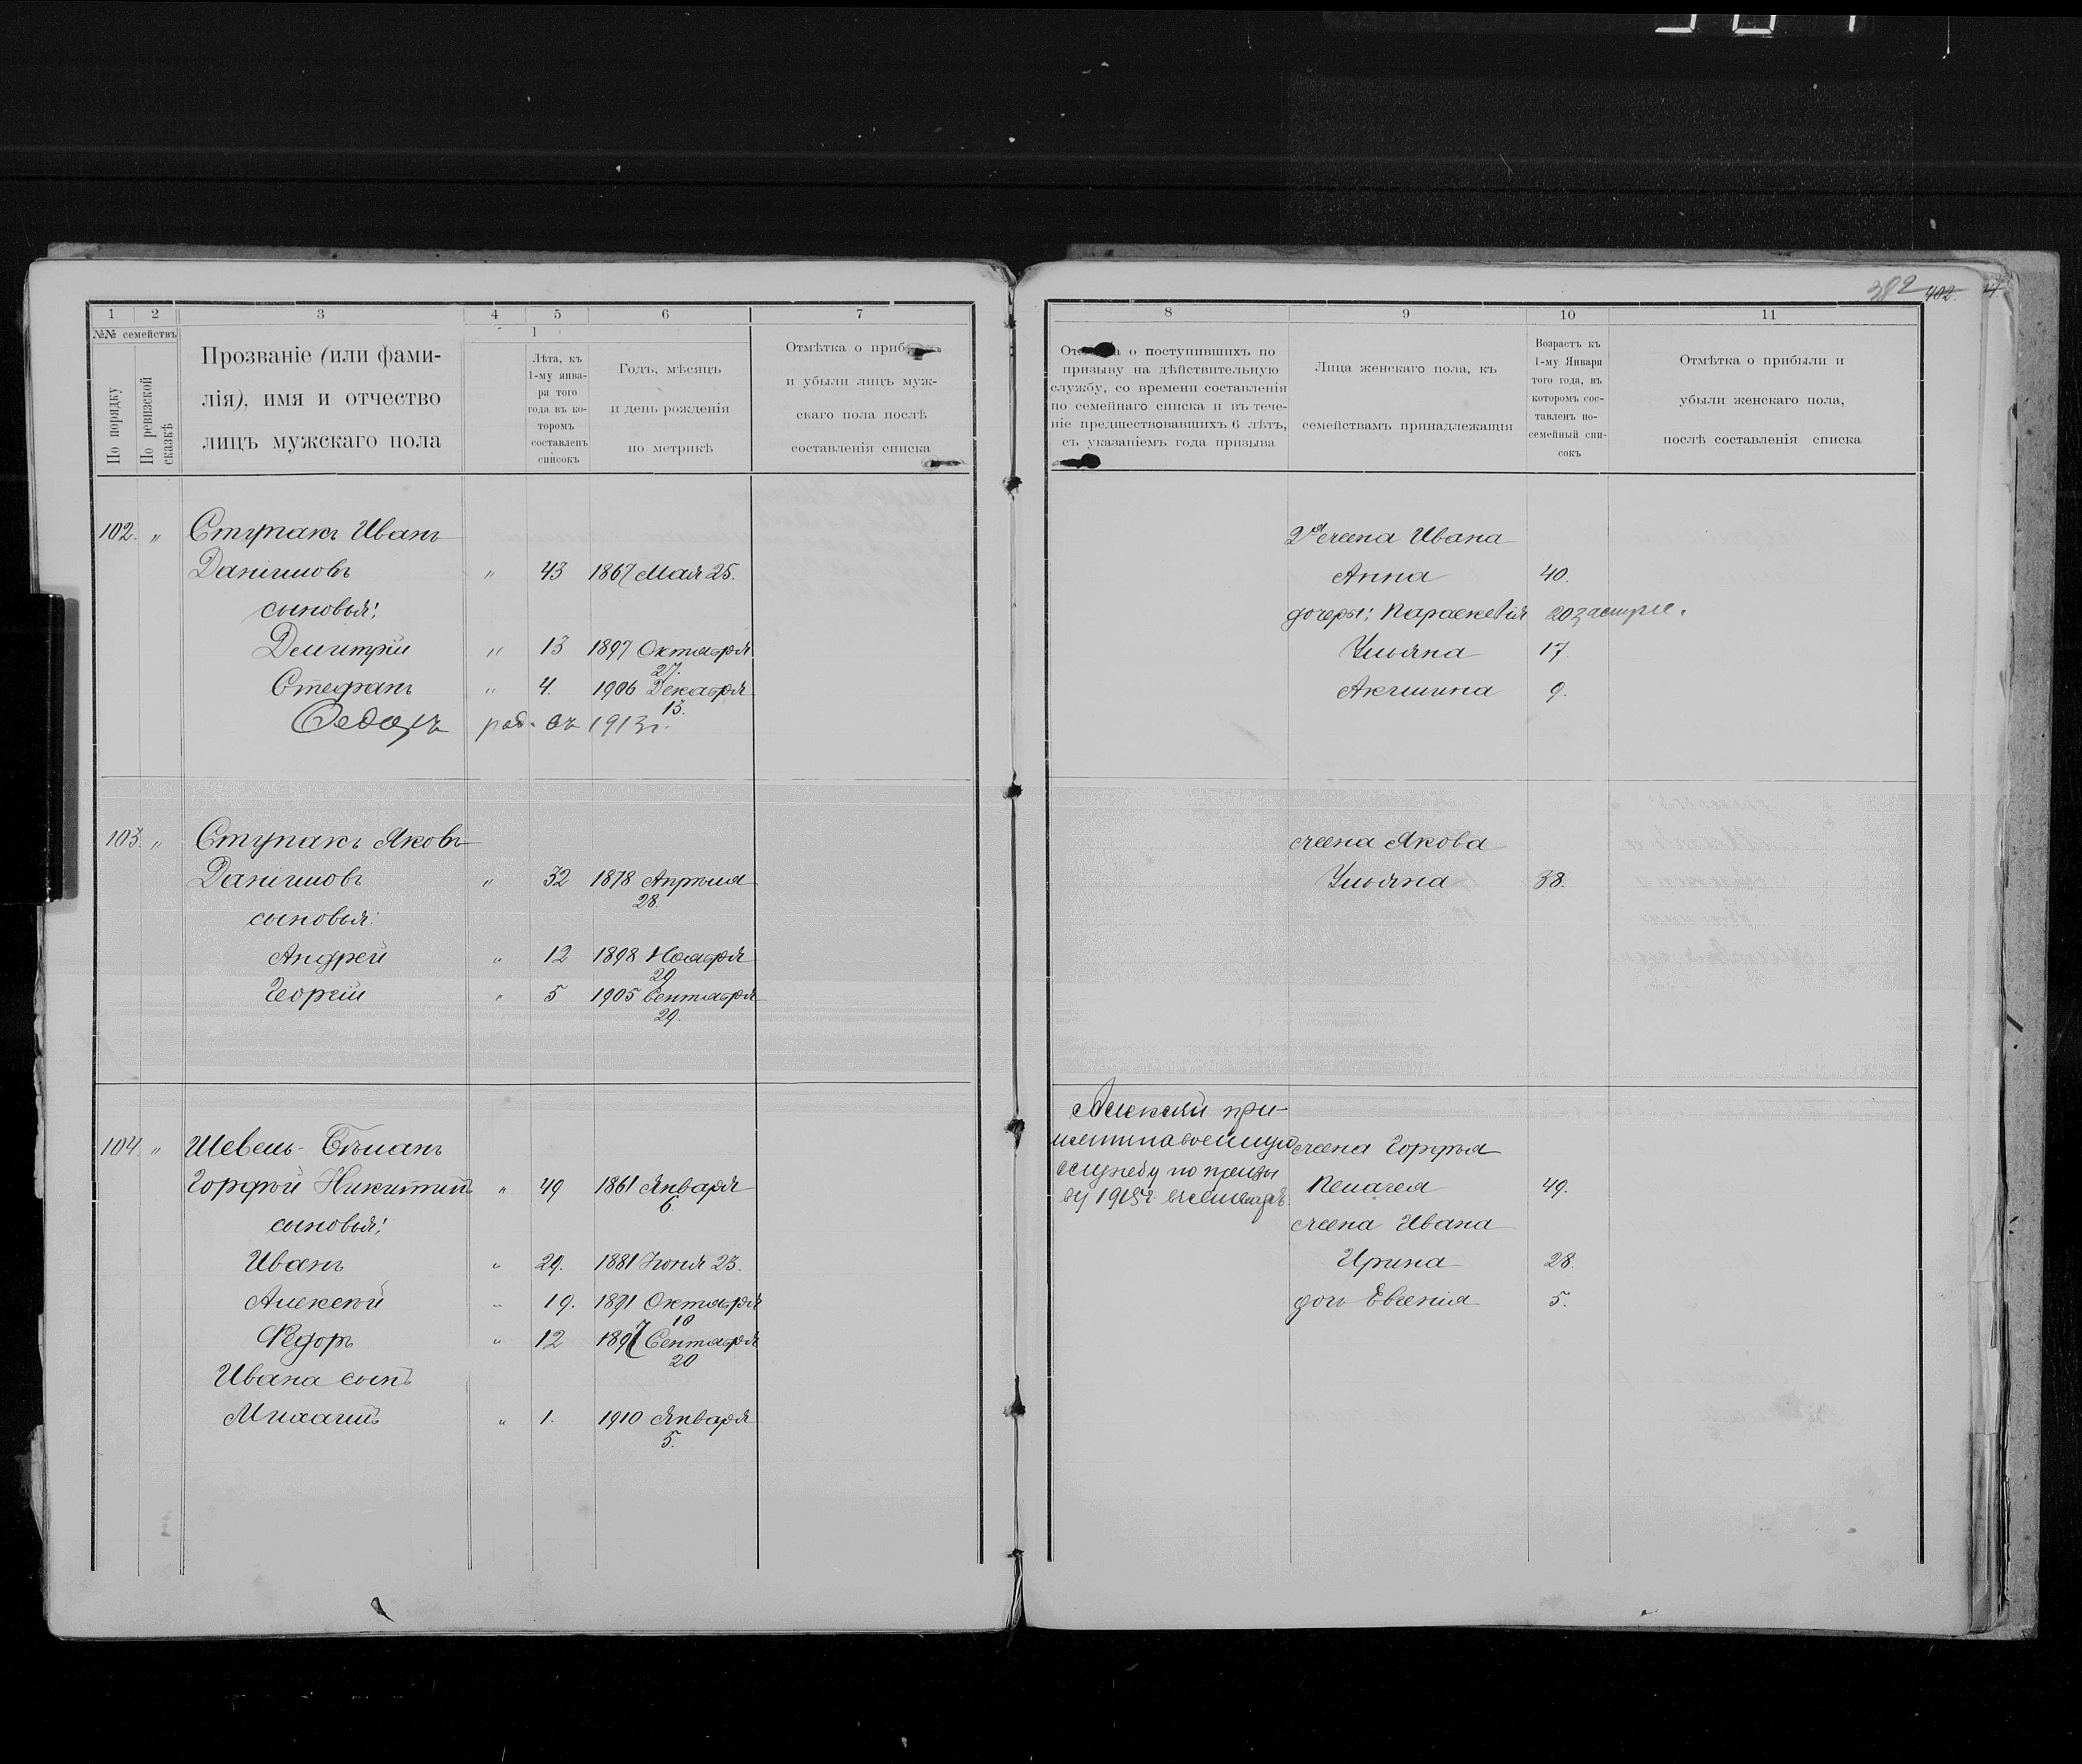 382 402
1 2 3 4 5 6 7
№№ семействъ
По порядку
По ревизской сказкѣ
Прозваніе (или фами-
лія), имя и отчество
лицъ мужскаго пола
1
Лѣта, къ
1-му янва-
ря того
года въ ко-
торомъ
составленъ
списокъ
Годъ, мѣсяцъ
и день рожденія
по метрикѣ
Отмѣтка о
и убыли лицъ муж-
скаго пола послѣ
составленія списка
102. „ Ступакъ Иванъ
Даніиловъ „ 43 1867 Мая 25.
сыновья:
Димитрій „ 13 1897 Октября
27.
Стефанъ „ 4. 1906 Декабря
13.
род. въ 1913 г.
103. „ Ступакъ Яковъ
Даніиловъ „ 32 1878 Апрѣля
28.
сыновья:
Андрей „ 12 1898 Ноября
29
Георгій „ 5 1905 Сентября
29.
104 „ Шевель-Бѣланъ
Гордѣй Никитинъ „ 49 1861 Января
6.
сыновья:
Иванъ „ 29. 1881 Іюня 23.
Алексѣй „ 19. 1891 Октября
10
Ѳедоръ „ 12 1897 Сентября
20
Ивана сынъ
Михаилъ „ 1. 1910 Января
5.
8 9 10 11
о поступившихъ по
призыву на дѣйствительную
службу, со времени составленія
по семейнаго списка и въ тече-
ніе предшествовавшихъ 6 лѣтъ,
съ указаніемъ года призыва
Лица женскаго пола, къ
семействамъ принадлежащія
Возрастъ къ
1-му Января
того года, въ
которомъ сос-
тавленъ по-
семейный спи-
сокъ
Отмѣтка о прибыли и
убыли женскаго пола,
послѣ составленія списка
2я жена Ивана
Анна 40.
дочери: Параскевія 20 замуже.
Ульяна 17.
Акилина 9.
жена Якова
Ульяна 38.
Алексѣй при-
нятъ на военную
службу по призы
ву
жена Гордѣя
Пелагея 49.
жена Ивана
Ирина 28.
дочь Евгенія 5.